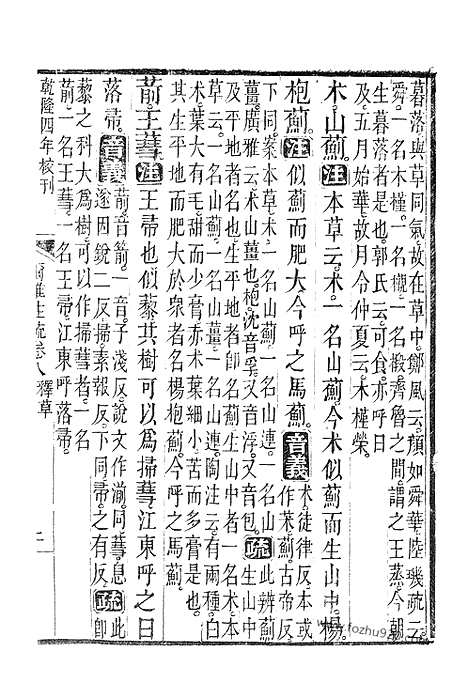 暮落與草同氣故在草中鄭風云顏如舜華陸璣疏云
舜一名木槿一名櫬一名椵齊魯之間謂之王蒸今朝
生暮落者是也郭氏云可食亦呼日
及五月始華故月令仲夏云木槿榮
术山薊注本草云术一名山薊今术似薊而生山中楊
枹薊注似薊而肥大今呼之馬薊音義术徒律反本或
作茱薊古帝反
下同案本草术一名山薊一名山連一名山
薑廣雅云术山薑也枹沈音孚又音浮又音包疏此辨薊
生山中
及平地者名也生平地者即名薊生山中者一名术本
草云术一名山薊一名山薑一名山連陶注云有兩種白
术葉大有毛甜而少膏赤术葉細小苦而多膏是也
其生平地而肥大於衆者名楊枹薊今呼之馬薊
葥王蔧注王帚也似藜其樹可以為掃蔧江東呼之曰
落帚音義葥音箭一音子淺反說文作湔同蔧息
遂因銳二反掃素報反下同帚之有反疏此
即
藜之科大為樹可以作掃蔧者一名
葥一名王蔧一名王帚江東呼落帚
乾隆四年校刊
爾雅注疏卷八釋草
www.fozhu9